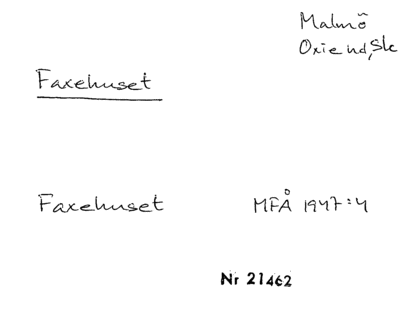 Malmö
Oxie hd, Sk
Faxehuset
Faxehuset MFÅ 1947:4
Nr 21462